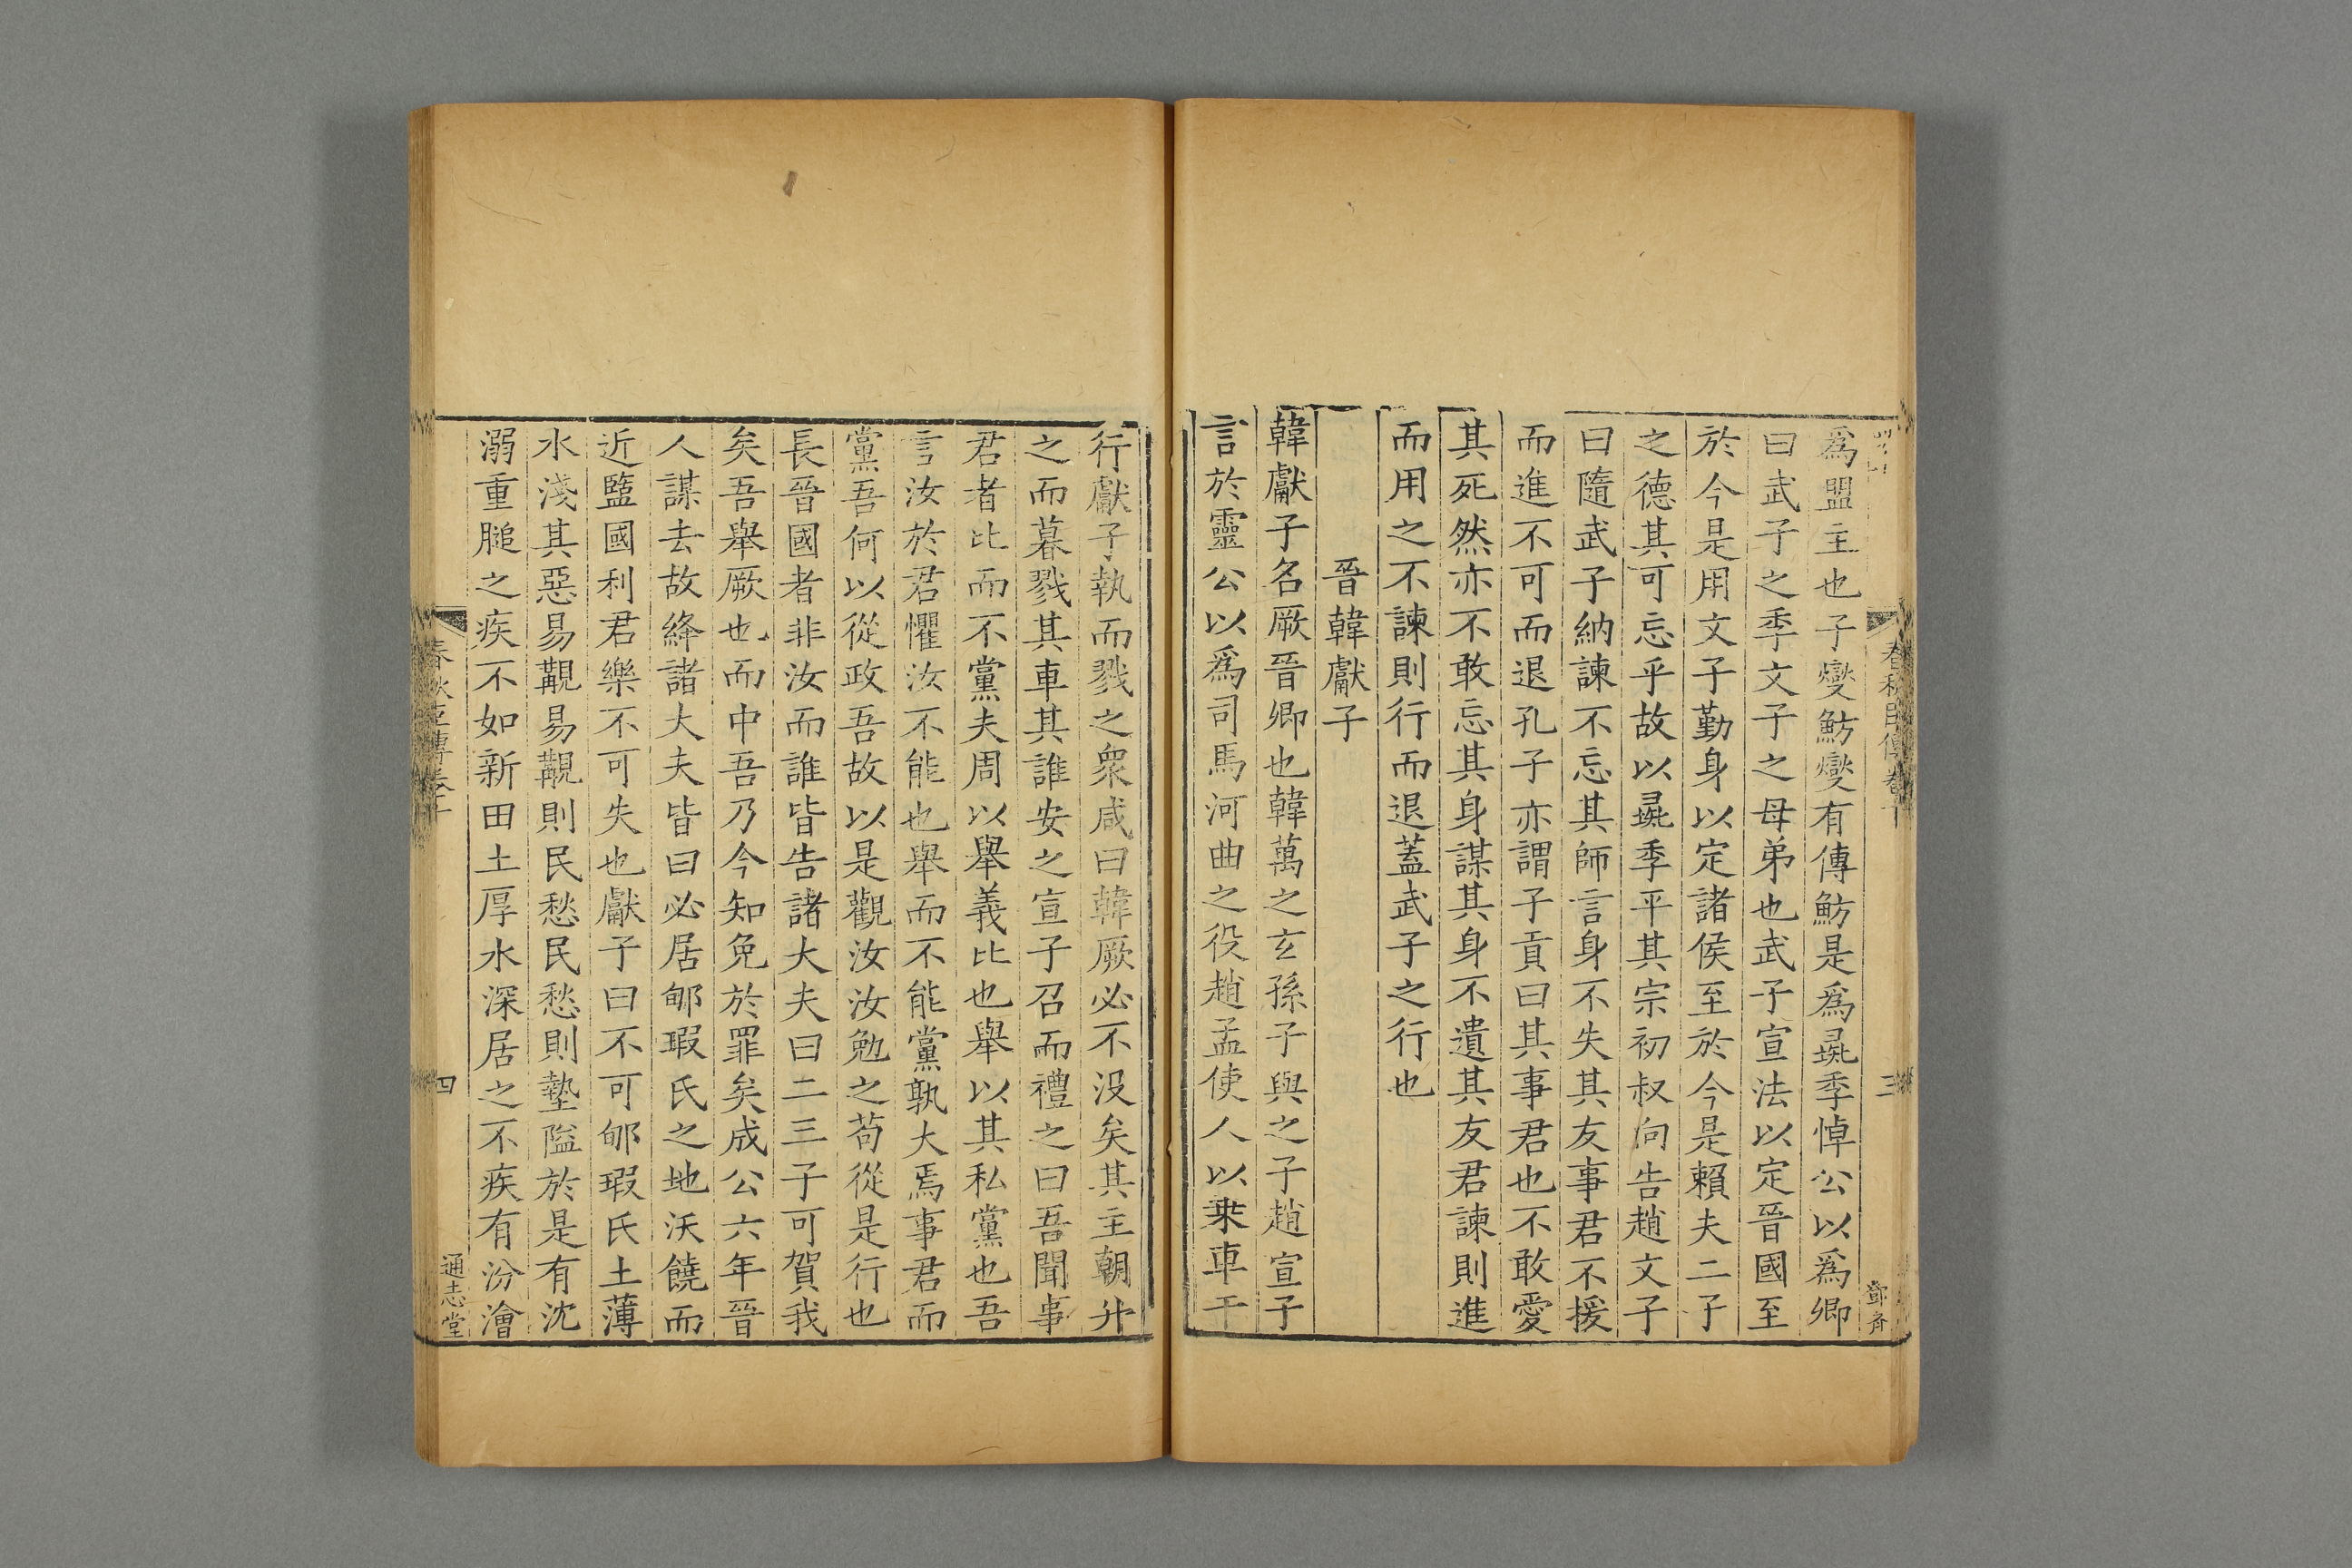 春秋臣傳卷十
三
鄧齊
爲盟主也子燮魴燮有傳魴是爲彘季悼公以爲卿
曰武子之季文子之母弟也武子宣法以定晉國至
於今是用文子勤身以定諸侯至於今是賴夫二子
之德其可忘乎故以彘季平其宗初叔向告趙文子
曰隨武子納諫不忘其師言身不失其友事君不援
而進不可而退孔子亦謂子貢曰其事君也不敢愛
其死然亦不敢忘其身謀其身不遺其友君諫則進
而用之不諫則行而退蓋武子之行也
晉韓獻子
韓獻子名厥晉卿也韓萬之玄孫子與之子趙宣子
言於靈公以爲司馬河曲之役趙孟使人以乗車干
行獻子執而戮之衆咸曰韓厥必不没矣其主朝升
之而暮戮其車其誰安之宣子召而禮之曰吾聞事
君者比而不黨夫周以舉義比也舉以其私黨也吾
言汝於君懼汝不能也舉而不能黨孰大焉事君而
黨吾何以從政吾故以是觀汝汝勉之苟從是行也
長晉國者非汝而誰皆告諸大夫曰二三子可賀我
矣吾舉厥也而中吾乃今知免於罪矣成公六年晉
人謀去故絳諸大夫皆曰必居郇瑕氏之地沃饒而
近鹽國利君樂不可失也獻子曰不可郇瑕氏土薄
水淺其惡易覯易覯則民愁民愁則墊隘於是有沈
溺重膇之疾不如新田土厚水深居之不疾有汾澮
春秋臣傳卷十
四
通志堂